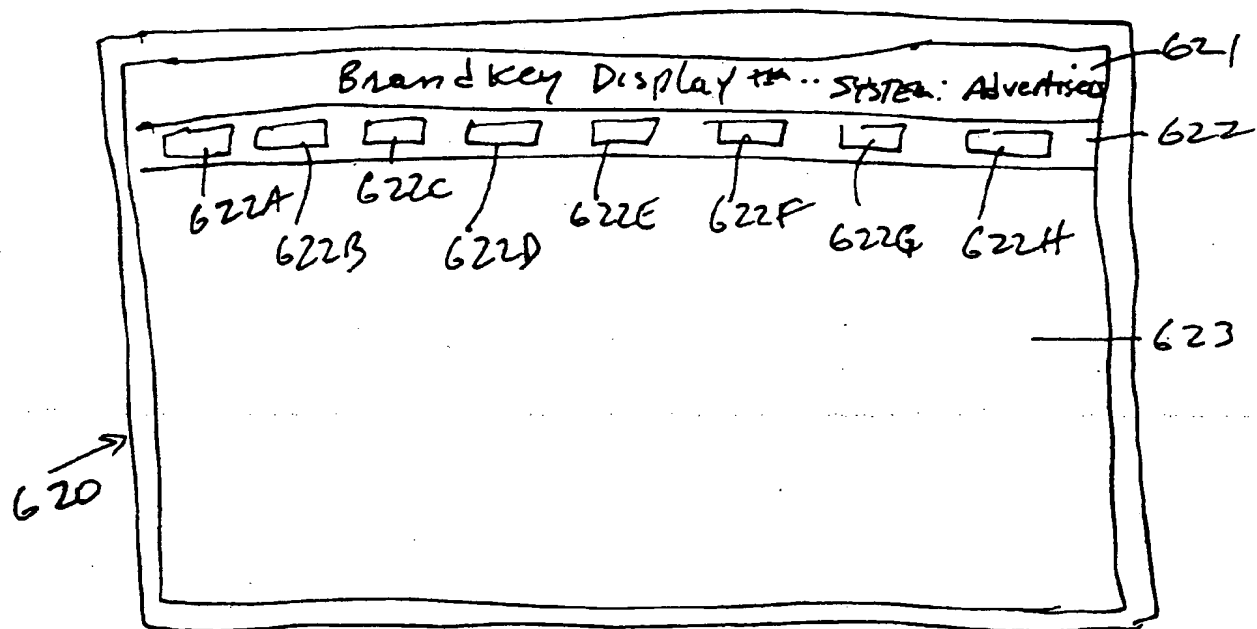 621
Brand Key Display ™ .. SYSTEM: Advertiser
622
622A 622B 622C 622D 622E 622F 622G 622H
623
620